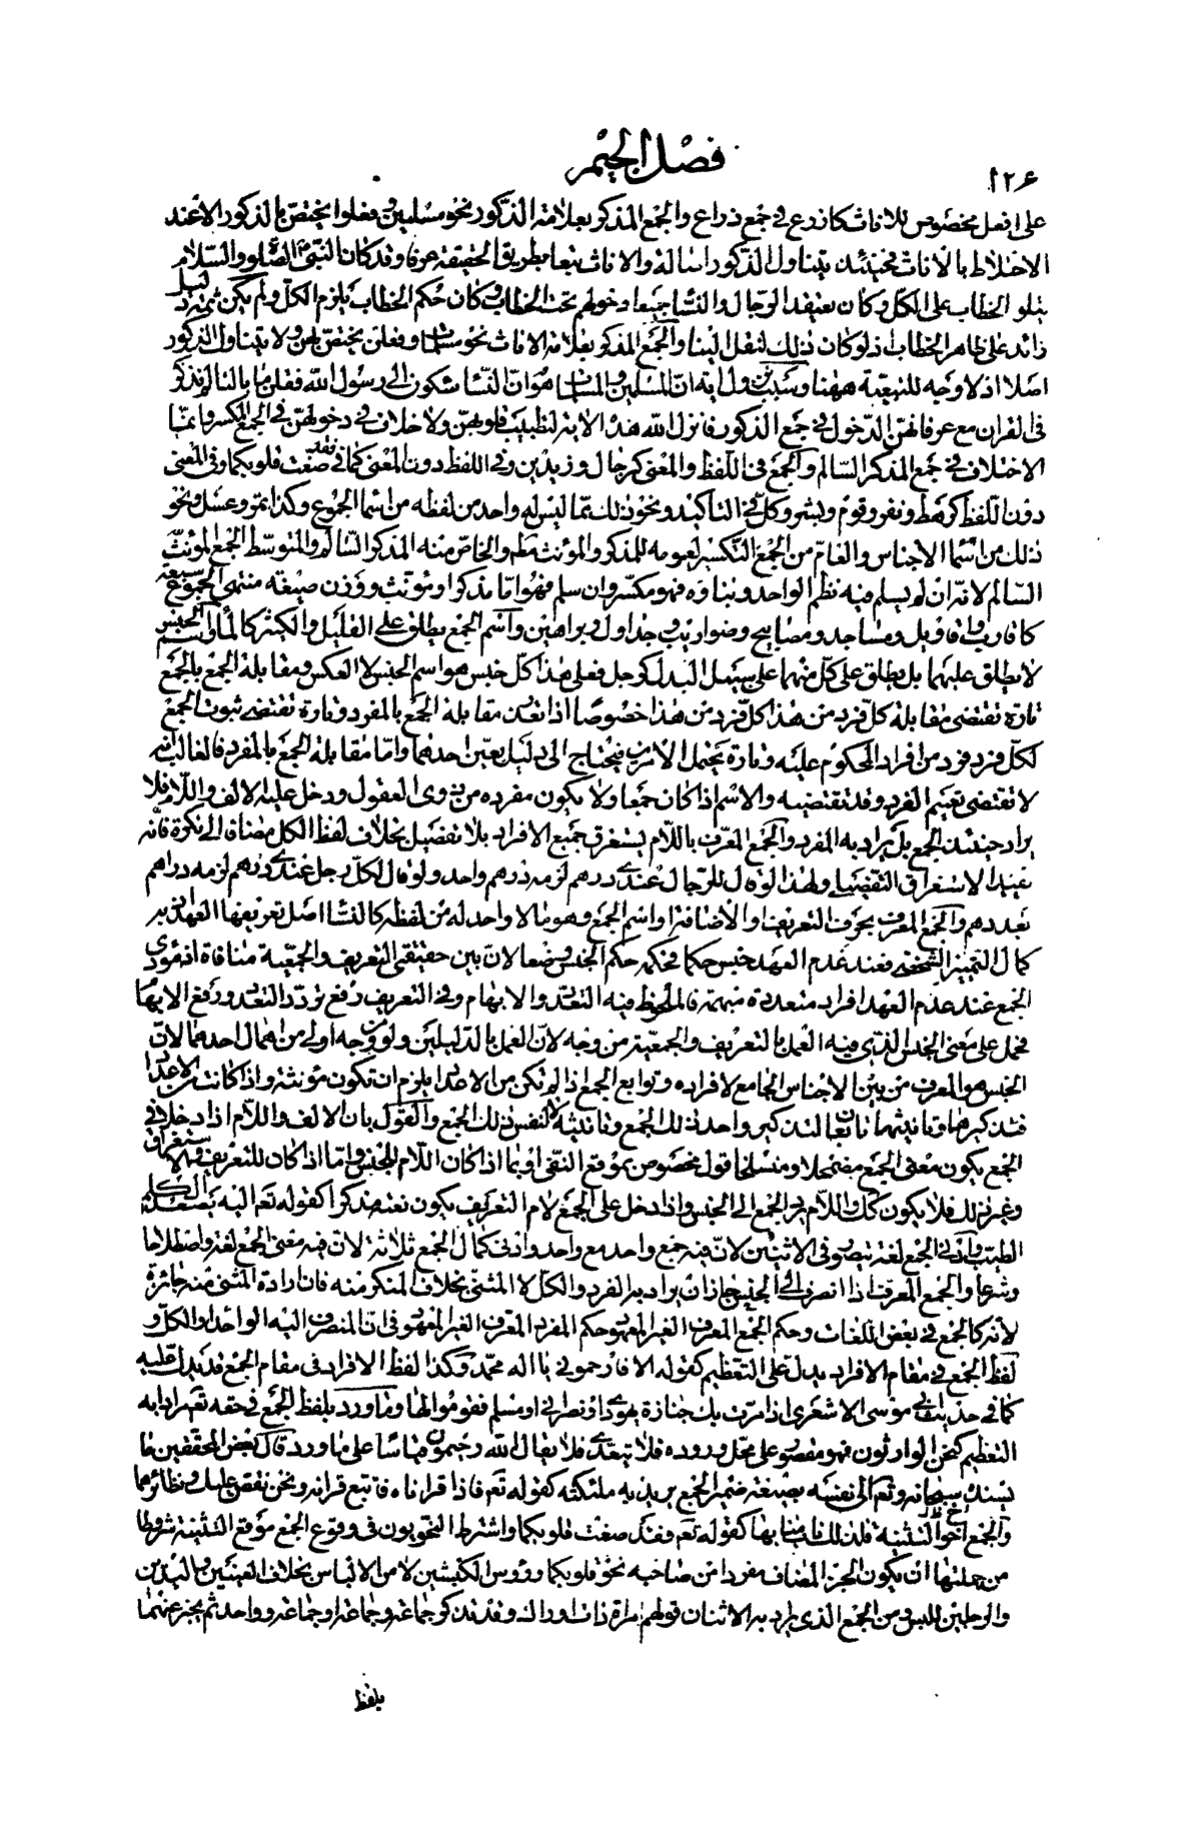 ١٢٦
فصل الجيم
على افعل مخصوص للاناث كاذرع في جمع ذراع والجمع المذكر بعلامة الذكور نحو مسلمين وفعلوا يختص بالذكور الا عند
الاختلاط بالاناث فحينئذ يتناول الذكور اصالة والاناث تبعا بطريق الحقيقة عرفا وقد كان النبي عليه الصلوة والسلام
يتلو الخطاب على الكل وكان يعتقد الرجال والنساء جميعا دخولهم تحت الخطاب وكان حكم الخطاب يلزم الكل ولم يكن ثمة دليل
زائد على ظاهر الخطاب اذ لو كان ذلك لنقل الينا والجمع المذكر بعلامة الاناث نحو مسلمات وفعلن يختص بهن ولا يتناول الذكور
اصلا اذ لا وجه للتبعية ههنا وسبب نزول اية ان المسلمين والمسلمات هو ان النساء شكون الى رسول الله فقلن ما بالنا لم نذكر
في القران مع عرفانهن الدخول في جمع الذكور فانزل الله هذه الاية لتطييب قلوبهن ولا خلاف في دخولهن في الجمع المكسر وانما
الاختلاف في جمع المذكر السالم والجمع في اللفظ والمعنى كرجال وزيدين وفي اللفظ دون المعنى كما في فقد صغت قلوبكما وفي المعنى
دون اللفظ كرهط ونفر وقوم وبشر وكل في التاكيد ونحو ذلك مما ليس له واحد من لفظه من اسماء الجموع وكذا تمر وعسل ونحو
ذلك من اسماء الاجناس والعام من الجمع التكسير لعمومه للمذكر والمؤنث مطلقا والخاص منه المذكر السالم والمتوسط الجمع المؤنث
السالم لانه ان لم يسلم فيه نظم الواحد وبناؤه فهو مكسر وان سلم فهو اما مذكر او مؤنث ووزن صيغة منتهى الجموع سبعة
كاقارب واقاويل ومساجد ومصابيح وضوارب وجداول وبراهين واسم الجمع يطلق على القليل والكثير كالماء واسم الجنس
لا يطلق عليهما بل يطلق على كل منهما على سبيل البدل كرجل فعلى هذا كل جنس هو اسم الجنس لا العكس ومقابلة الجمع بالجمع
تارة تقتضي مقابلة كل فرد من هذا كل فرد من هذا خصوصا اذا تعذر مقابلة الجمع بالمفرد وتارة تقتضي ثبوت الجمع
لكل فرد فرد من افراد المحكوم عليه وتارة يحتمل الامرين فيحتاج الى دليل يعين احدهما واما مقابلة الجمع بالمفرد فالغالب انه
لا تقتضي تعميم الفرد وقد تقتضيه والاسم اذا كان جمعا ولا يكون مفرده من ذوى العقول ودخل عليه الالف واللام فلا
يراد حينئذ الجمع بل يراد به المفرد والجمع المعرف باللام يستغرق جميع الافراد بلا تفصيل بخلاف لفظ الكل مضافا الى نكرة فانه
يفيد الاستغراق التفصيلي ولهذا لو قال للرجال عندى درهم لزمه درهم واحد ولو قال لكل رجل عندى درهم لزمه دراهم
بعددهم والجمع المعرف بحرف التعريف او الاضافة او اسم الجمع وهو ما لا واحد له من لفظه كالنساء اصل تعريفها العهد لانه
كمال التمييز الشخصي فعند عدم العهد جنس حكما فحكمه حكم الجنس وضعا لان بين حقيقتي التعريف والجمعية منافاة اذ مؤدى
الجمع عند عدم العهد افراد متعددة مبهمة فالملحوظ فيه التعدد والابهام وفي التعريف رفع تردد التعدد ورفع الابهام
فحمل على معنى الجنس الذي فيه العمل بالتعريف والجمعية من وجه لان العمل بالدليلين ولو من وجه اولى من اهمال احدهما لان
الجنس هو المعرف من بين الاجناس الجامع لافراده وتوابع الجمع اذا لم تكن من الاعداد يلزم ان تكون مؤنثة واذا كانت من الاعداد
فتذكيرها وتانيثها تابعان لتذكير واحد ذلك الجمع وتانيثه لا لنفس ذلك الجمع والقول بان الالف واللام اذا دخلا في
الجمع يكون معنى الجمع مضمحلا ومنسلخا قول مخصوص بموقع النفي او بما اذا كان اللام للجنس واما اذا كان للتعريف والاستغراق
وغير ذلك فلا يكون كذلك واللام يرد الجمع الى الجنس واذا دخل على الجمع لام التعريف يكون نعته مذكرا كقوله تعم اليه يصعد الكلم
الطيب وادنى الجمع لغة يتصور في الاثنين لان فيه جمع واحد مع واحد وادنى كمال الجمع ثلاثة لان فيه معنى الجمع لغة واصطلاحا
وشرعا والجمع المعرف اذا انصرف الى الجنس جاز ان يراد به الفرد والكل لا المثنى بخلاف المنكر منه فان ارادة المثنى منه جائزة
لانه كالجمع في بعض اللغات وحكم الجمع المعرف الغير المعهود حكم المفرد المعرف الغير المعهود في ان المنصرف اليه الواحد او الكل و
لفظ الجمع في مقام الافراد يدل على التعظيم كقوله الا فارحموني يا اله محمد وكذا لفظ الافراد في مقام الجمع قد يدل عليه
كما في حديث ابي موسى الاشعرى اذا مرت بك جنازة يهودى او نصراني او مسلم فقوموا لها وما ورد بلفظ الجمع في حقه تعم مرادا به
التعظيم كنحن الوارثون فهو مقصور على محل وروده فلا يتعدى فلا يقال الله رحيمون قياسا على ما ورد قال بعض المحققين ما
يسنده سبحانه وتعم الى نفسه بصيغة ضمير الجمع يريد به ملئكته كقوله تعم فاذا قراناه فاتبع قرانه ونحن نقص عليك ونظائرهما
والجمع اخو التثنية فلذلك ناب منابها كقوله تعم فقد صغت قلوبكما واشترط النحويون في وقوع الجمع موقع التثنية شروطا
من جملتها ان يكون الجزء المضاف مفردا من صاحبه نحو قلوبكما ورؤس الكبشين لامن الالباس بخلاف العينين واليدين
والرجلين للبس ومن الجمع الذي يراد به الاثنان قولهم امراة ذات اوراك وقد تذكر جماعة وجماعة او جماعة وواحد ثم يخبر عنهما
بلفظ